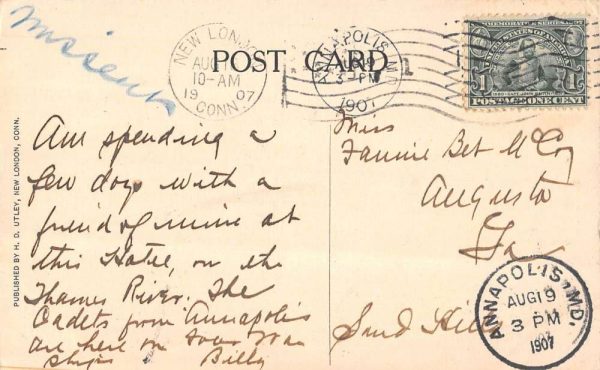 missent
POST CARD
NEW LONDON
AUG
10-AM
19 07
CONN.
ANNAPOLIS, MD.
3 PM
1907
1
COMMEMORATIVE SERIES, 1907
UNITED STATES OF AMERICA
POSTAGE ONE CENT
PUBLISHED BY H. D. UTLEY, NEW LONDON, CONN.
Am spending a
few days with a
friend of mine at
this Hotel, on the
Thames River. The
Cadets from Annapolis
are here on four War
ships
Billy
Miss
Fannie Bet McCoy
Augusta
Ga
Sand Hills
ANNAPOLIS, MD.
AUG 19
3 PM
1907